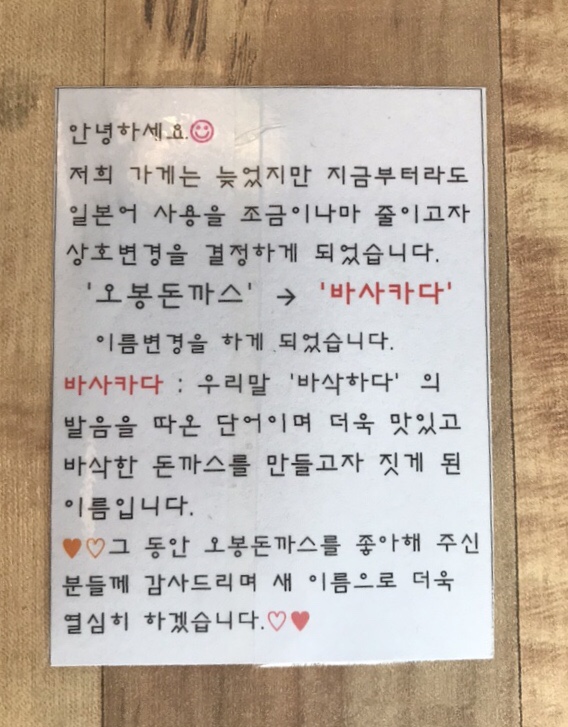 안녕하세요.
저희 가게는 늦었지만 지금부터라도
일본어 사용을 조금이나마 줄이고자
상호변경을 결정하게 되었습니다.
'오봉돈까스' → '바사카다'
이름변경을 하게 되었습니다.
바사카다 : 우리말 '바삭하다' 의
발음을 따온 단어이며 더욱 맛있고
바삭한 돈까스를 만들고자 짓게 된
이름입니다.
♥♡그 동안 오봉돈까스를 좋아해 주신
분들께 감사드리며 새 이름으로 더욱
열심히 하겠습니다.♡♥